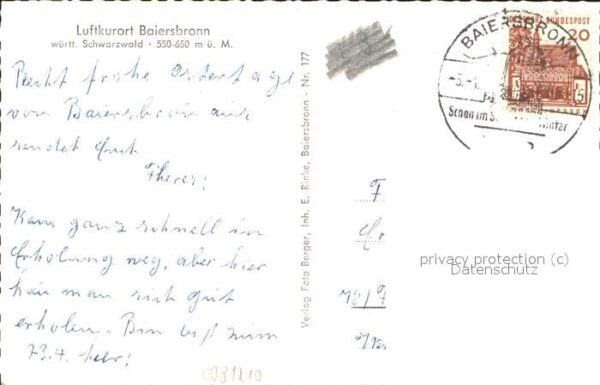 Luftkurort Baiersbronn
württ. Schwarzwald · 550-650 m ü. M.
Recht frohe Ostertage
von Baiersbronn aus
sendet Euch
Kam ganz schnell in
Erholung weg, aber hier
kann man sich gut
erholen. Bin bis zum
23.4. hier!
Verlag Foto Berger, Inh. E. Rinke, Baiersbronn - Nr. 177
BAIERSBRONN
Schön im Winter
BUNDESPOST
20
privacy protection (c)
Datenschutz
0031210